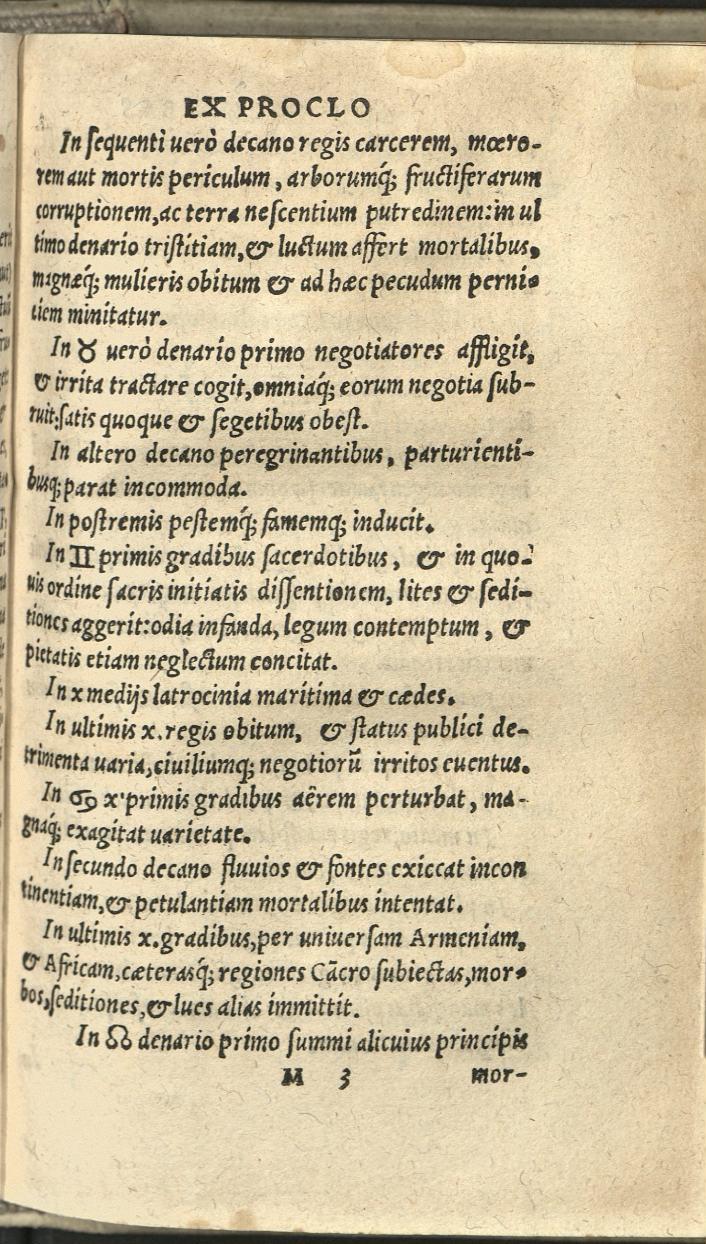 EX PROCLO
In sequenti uerò decano regis carcerem, mœro-
rem aut mortis periculum, arborumq́; fructiferarum
corruptionem, ac terra nescentium putredinem: in ul
timo denario tristitiam, & luctum affert mortalibus,
magnæq́; mulieris obitum & ad hæc pecudum perni-
tiem minitatur.
In ♉ uerò denario primo negotiatores affligit,
& irrita tractare cogit, omniaq́; eorum negotia sub-
ruit: satis quoque & segetibus obest.
In altero decano peregrinantibus, parturienti-
busq; parat incommoda.
In postremis pestemq́; famemq; inducit.
In ♊ primis gradibus sacerdotibus, & in quo-
uis ordine sacris initiatis dissentionem, lites & sedi-
tiones aggerit: odia infanda, legum contemptum, &
pietatis etiam neglectum concitat.
In x medijs latrocinia maritima & cædes.
In ultimis x. regis obitum, & status publici de-
trimenta uaria, ciuiliumq; negotiorū irritos euentus.
In ♋ x· primis gradibus aërem perturbat, ma-
gnaq́; exagitat uarietate.
In secundo decano fluuios & fontes exiccat incon
tinentiam, & petulantiam mortalibus intentat.
In ultimis x. gradibus, per uniuersam Armeniam,
& Africam, cæterasq́; regiones Cācro subiectas, mor-
bos, seditiones, & lues alias immittit.
In ♌ denario primo summi alicuius principis
M 3 mor-